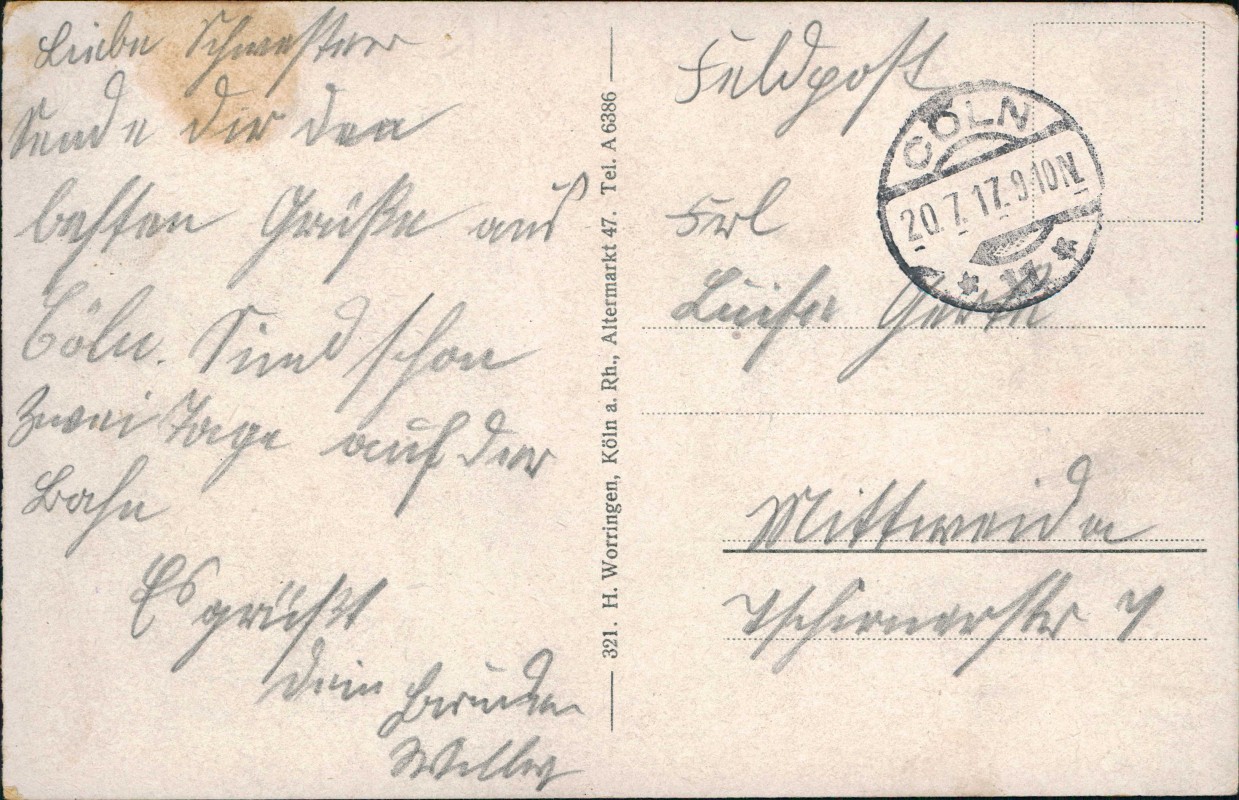 Liebe Schwester
Sende dir den
besten Grüße aus
Cöln. Sind schon
zwei Tage auf der
Bahn
Es grüßt
dein Bruder
Willy
321. H. Worringen, Köln a. Rh., Altermarkt 47. Tel. A 6386
Feldpost
CÖLN
20.7.17.9-10N.
* 11 *
Frl
Luise
Mittweida
Tschirnerstr